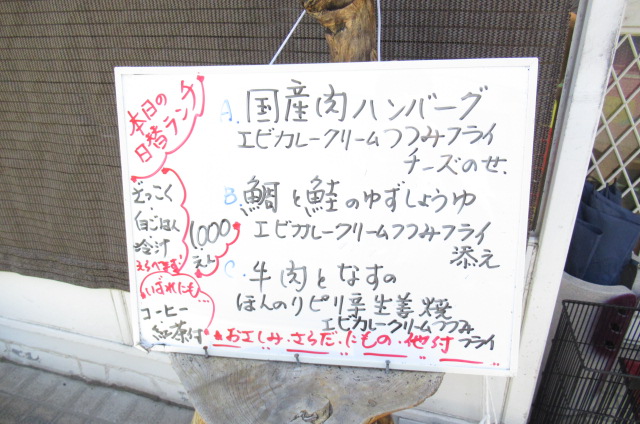 本日の
日替ランチ
ざっこく
白ごはん
冷汁
えらべます
1000
えん
いずれにも
コーヒー
紅茶付
A. 国産肉ハンバーグ
エビカレークリームつつみフライ
チーズのせ
B. 鯛と鮭のゆずしょうゆ
エビカレークリームつつみフライ
添え
C. 牛肉となすの
ほんのりピリ辛生姜焼
エビカレークリームつつみ
フライ
おさしみ・さらだ・にもの・他付